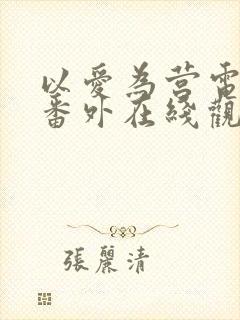 以愛為营電
番外在綫觀
張麗清